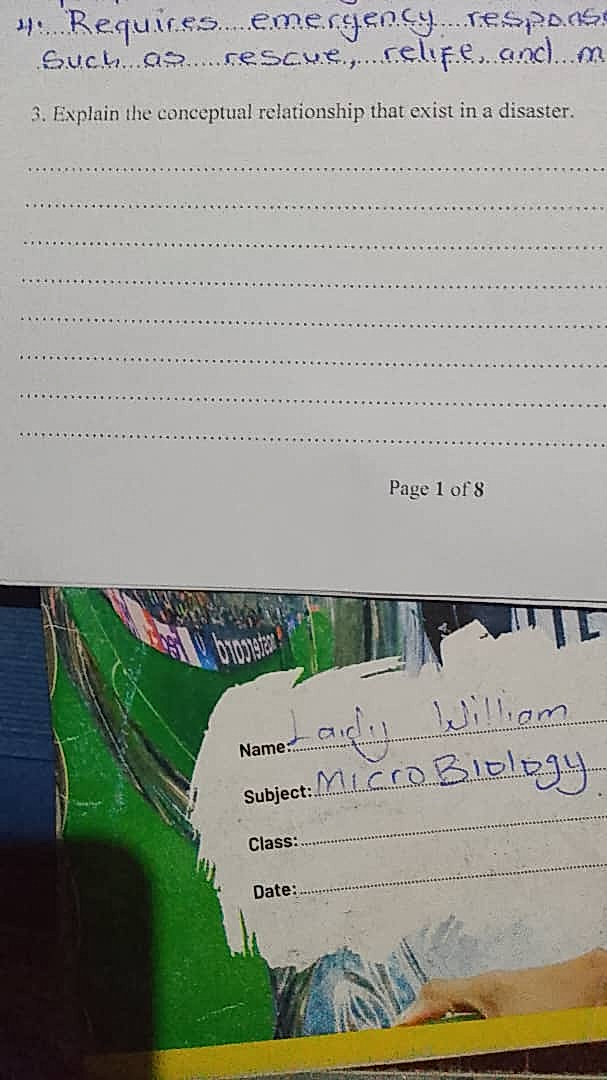 4. Requires emergency respons
Such as rescue, relife, and m
3. Explain the conceptual relationship that exist in a disaster.
Page 1 of 8
Name: Lady William
Subject: MicroBiology
Class:
Date: